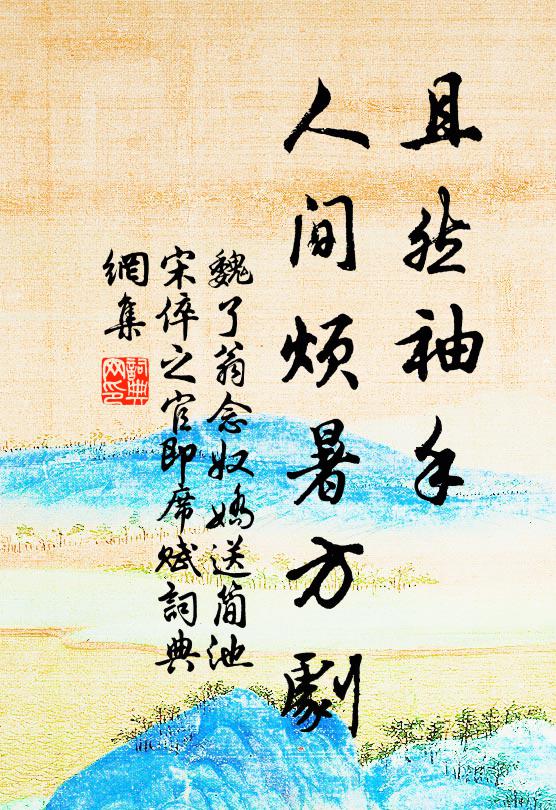 且然袖手
人间烦暑方剧
魏了翁念奴娇送简池
宋倅之官即席赋詞典
網集
詞典
网印